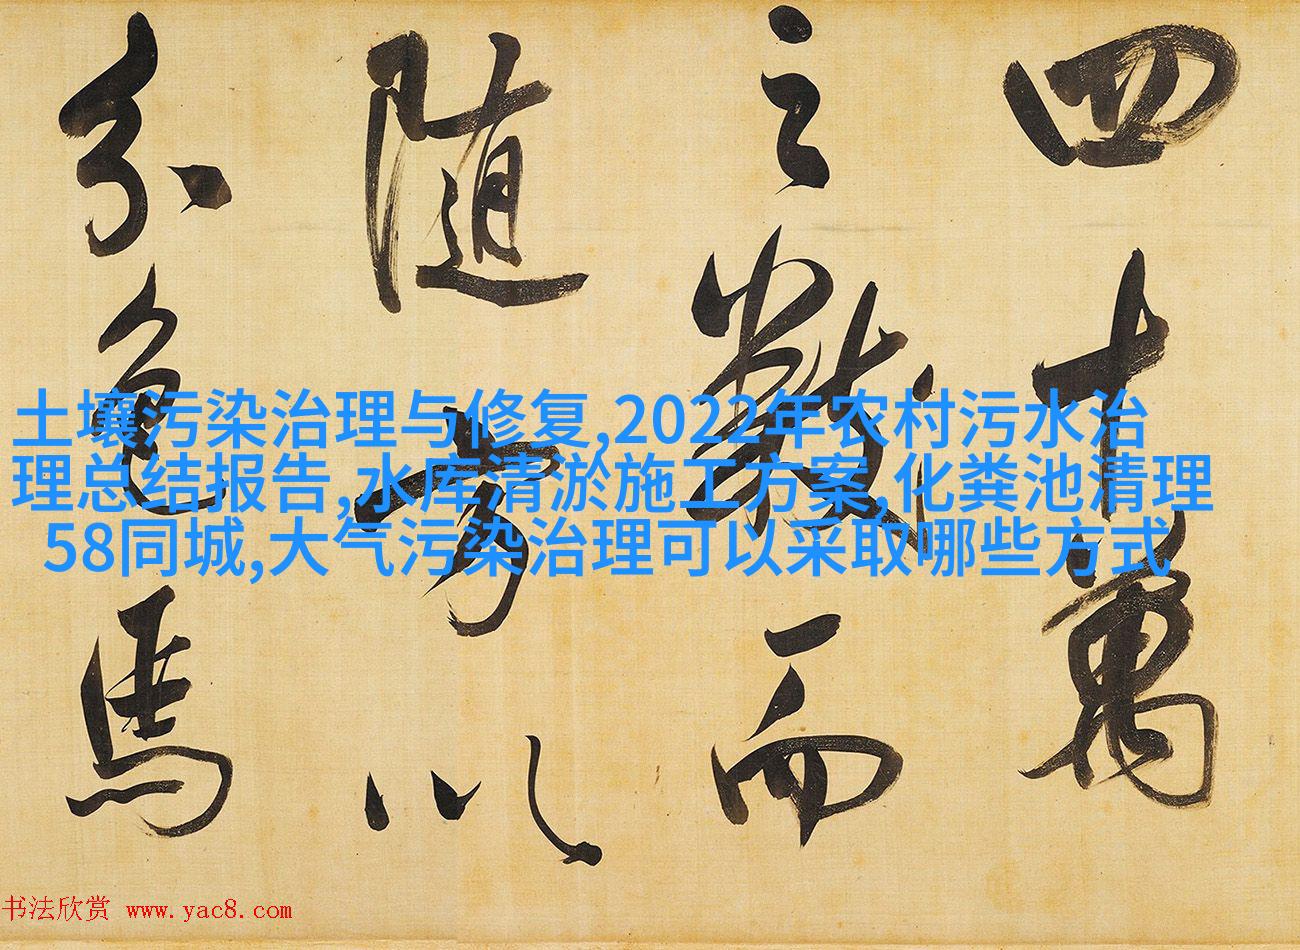 四十萬
之數而
随方以
分色馬
土壤污染治理与修复,2022年农村污水治
理总结报告,水库清淤施工方案,化粪池清理
58同城,大气污染治理可以采取哪些方式
书法欣赏 www.yac8.com